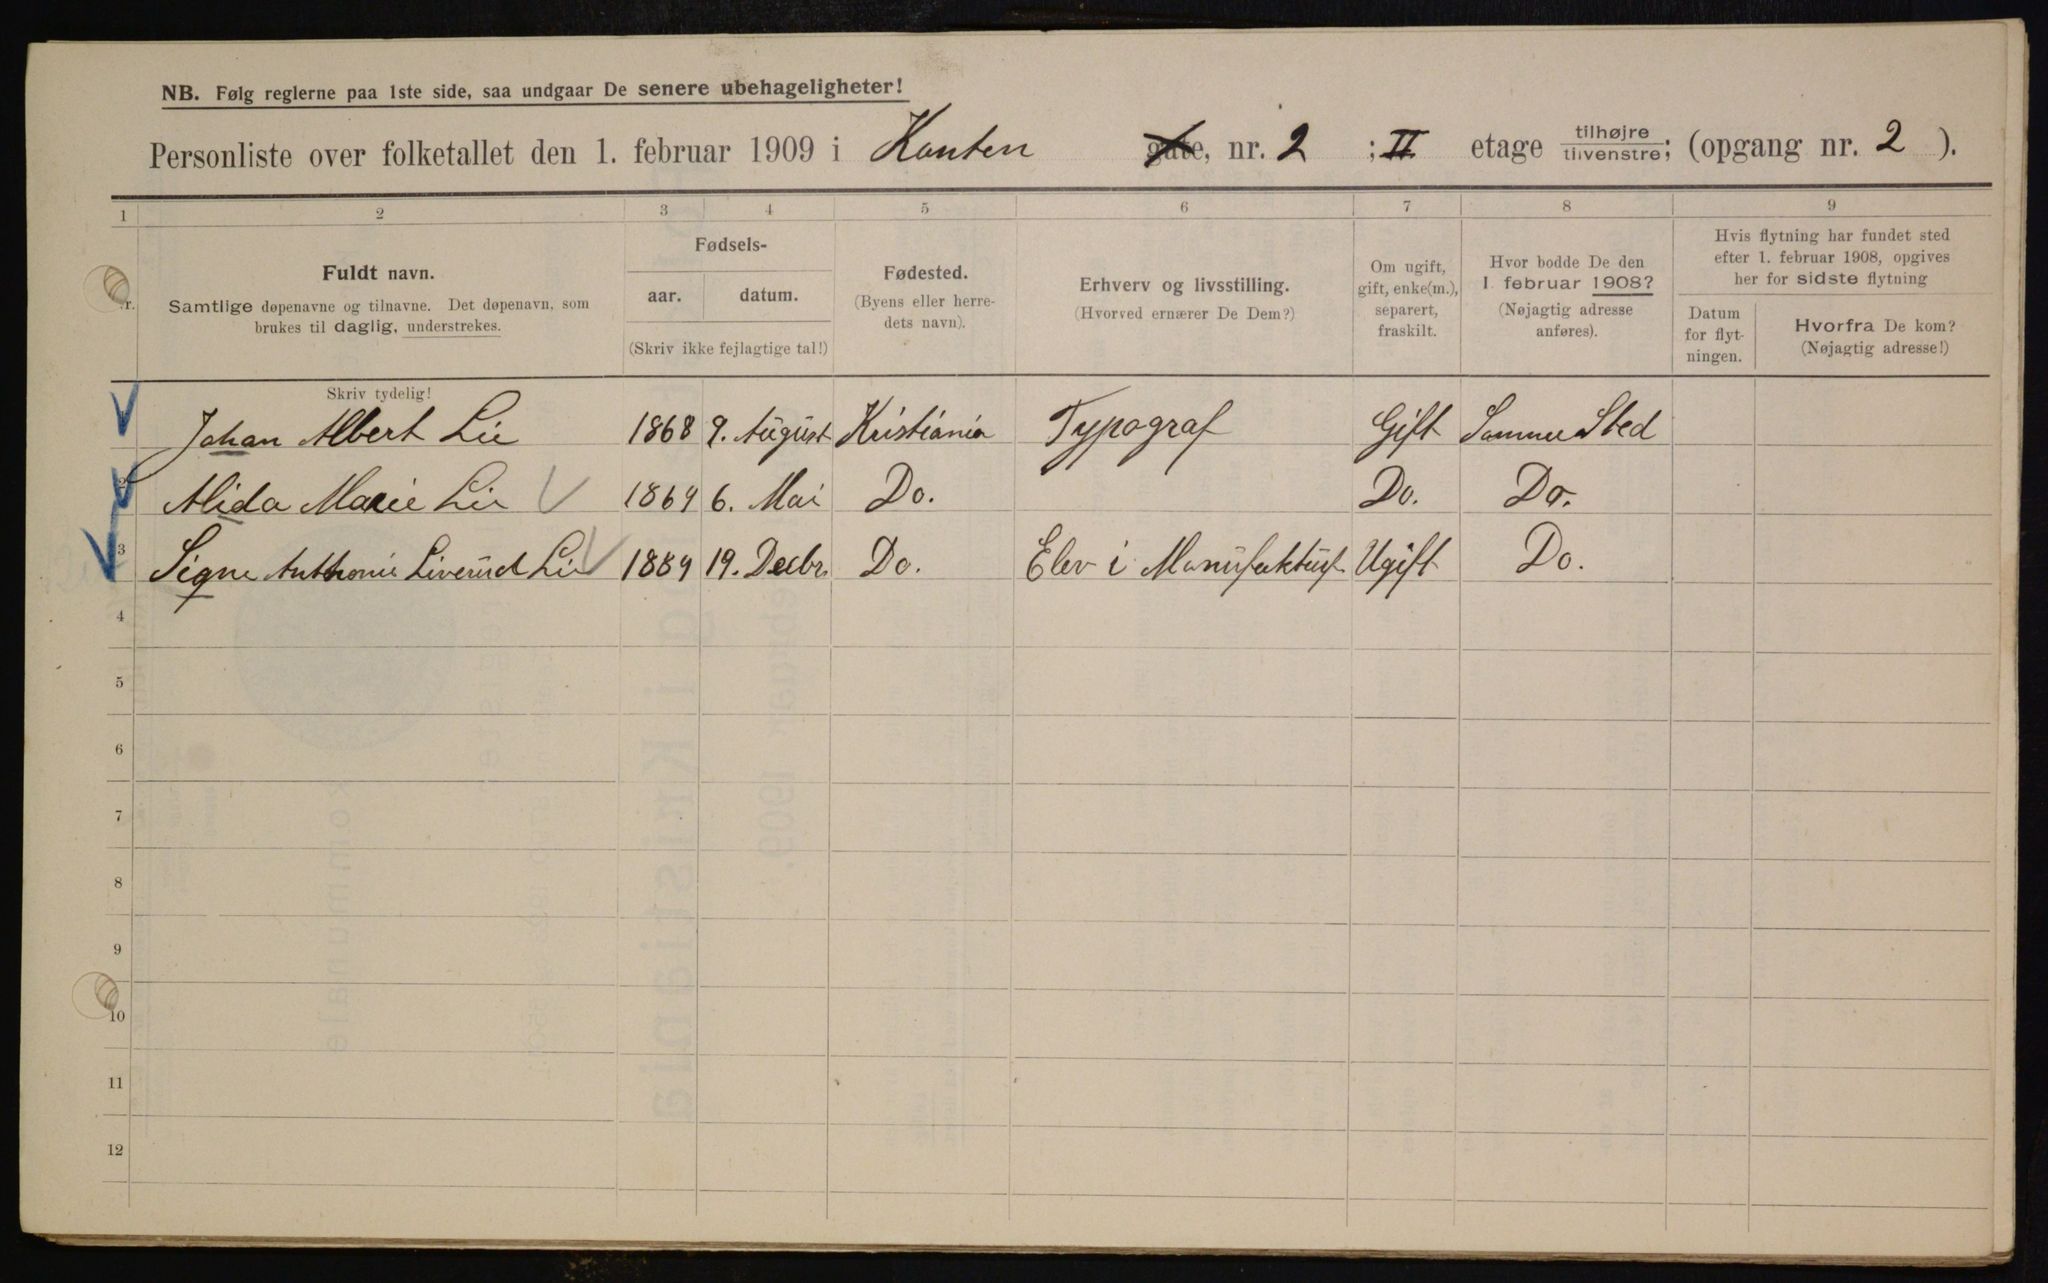 NB. Følg reglerne paa 1ste side, saa undgaar De senere ubehageligheter!
Personliste over folketallet den 1. februar 1909 i Hauten gate, nr. 2 ; II etage tilhøjre / tilvenstre; (opgang nr. 2 ).
1 2 3 4 5 6 7 8 9
Nr.
Fuldt navn.
Samtlige døpenavne og tilnavne. Det døpenavn, som
brukes til daglig, understrekes.
Fødsels-
aar. datum.
(Skriv ikke fejlagtige tal!)
Fødested.
(Byens eller herre-
dets navn).
Erhverv og livsstilling.
(Hvorved ernærer De Dem?)
Om ugift,
gift, enke(m.),
separert,
fraskilt.
Hvor bodde De den
1. februar 1908?
(Nøjagtig adresse
anføres).
Hvis flytning har fundet sted
efter 1. februar 1908, opgives
her for sidste flytning
Datum
for flyt-
ningen.
Hvorfra De kom?
(Nøjagtig adresse!)
Skriv tydelig!
Johan Albert Lie 1868 9. August Kristiania Typograf Gift Samme Sted
2 Alida Marie Lie 1869 6. Mai Do. Do. Do.
3 Signe Anthonie Liverud Lie 1889 19. Decbr. Do. Elev i Manufaktur Ugift Do.
4
5
6
7
8
9
10
11
12